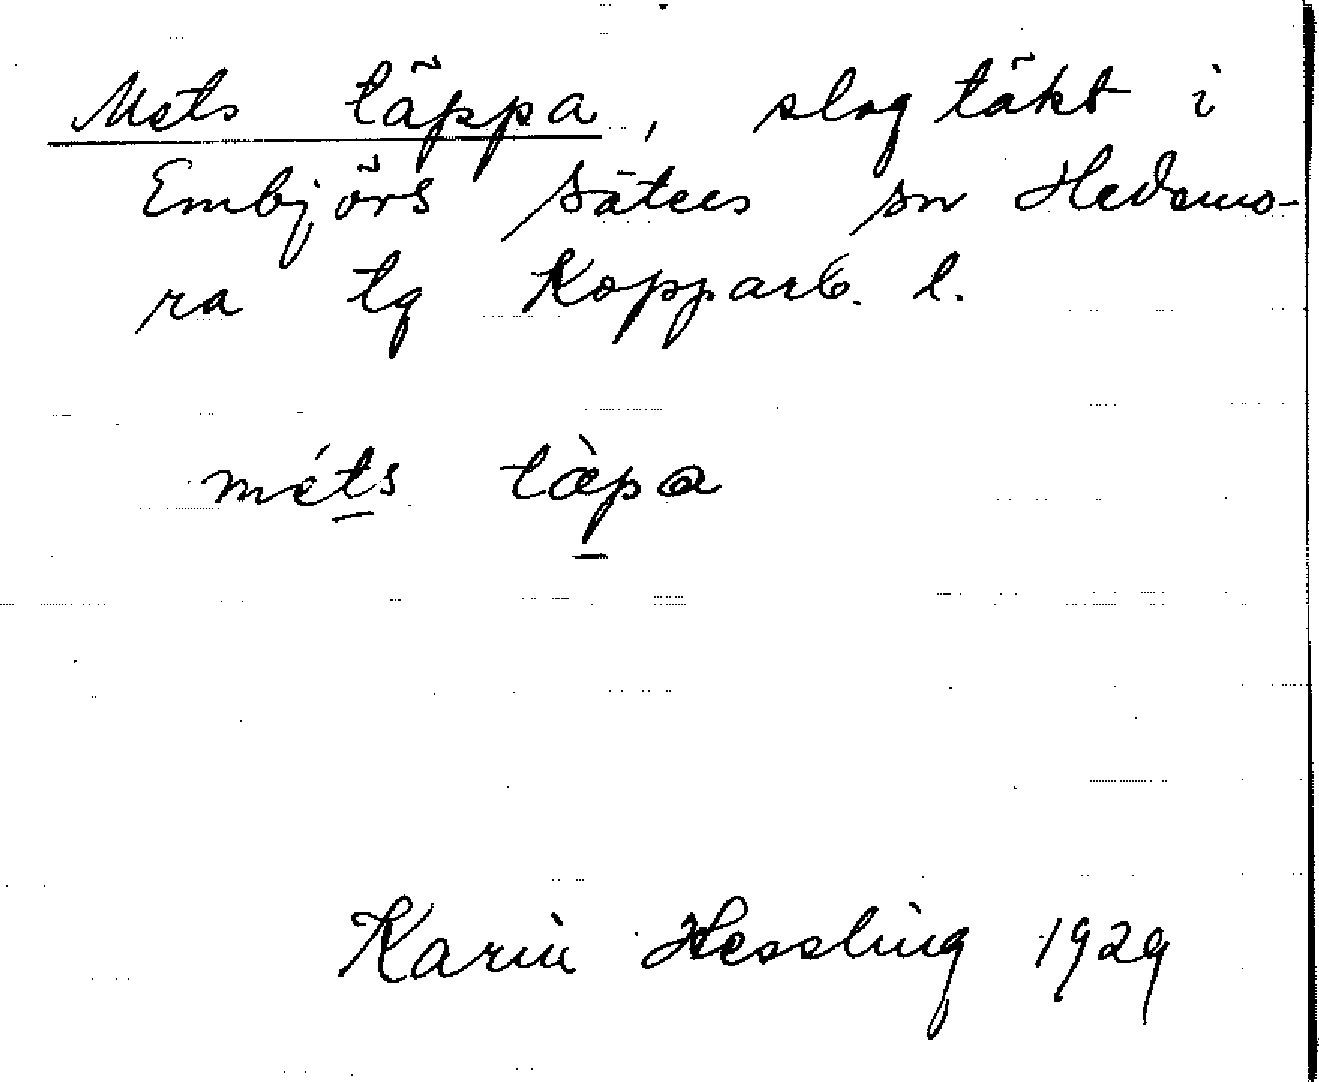 Mets täppa, slogtäkt i
Embjörs Säters sn Hedemo-
ra tg Kopparb. l.
méts tæ̀pa
Karin Hessling 1929